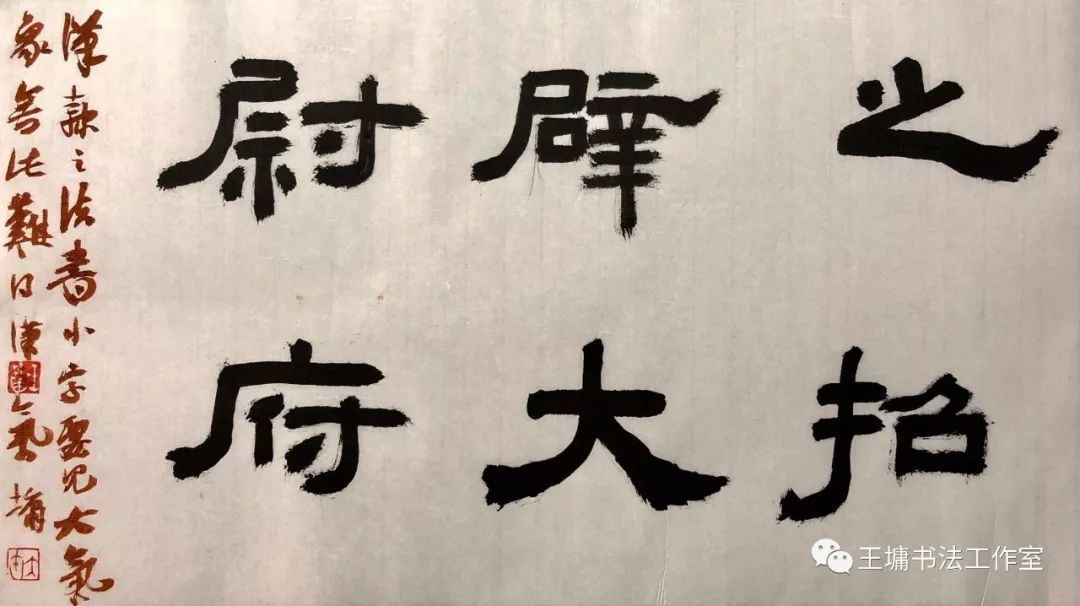 之招
辟大
尉府
漢隸之法書小字要見大氣
象舍此難得漢氣 墉
王墉书法工作室